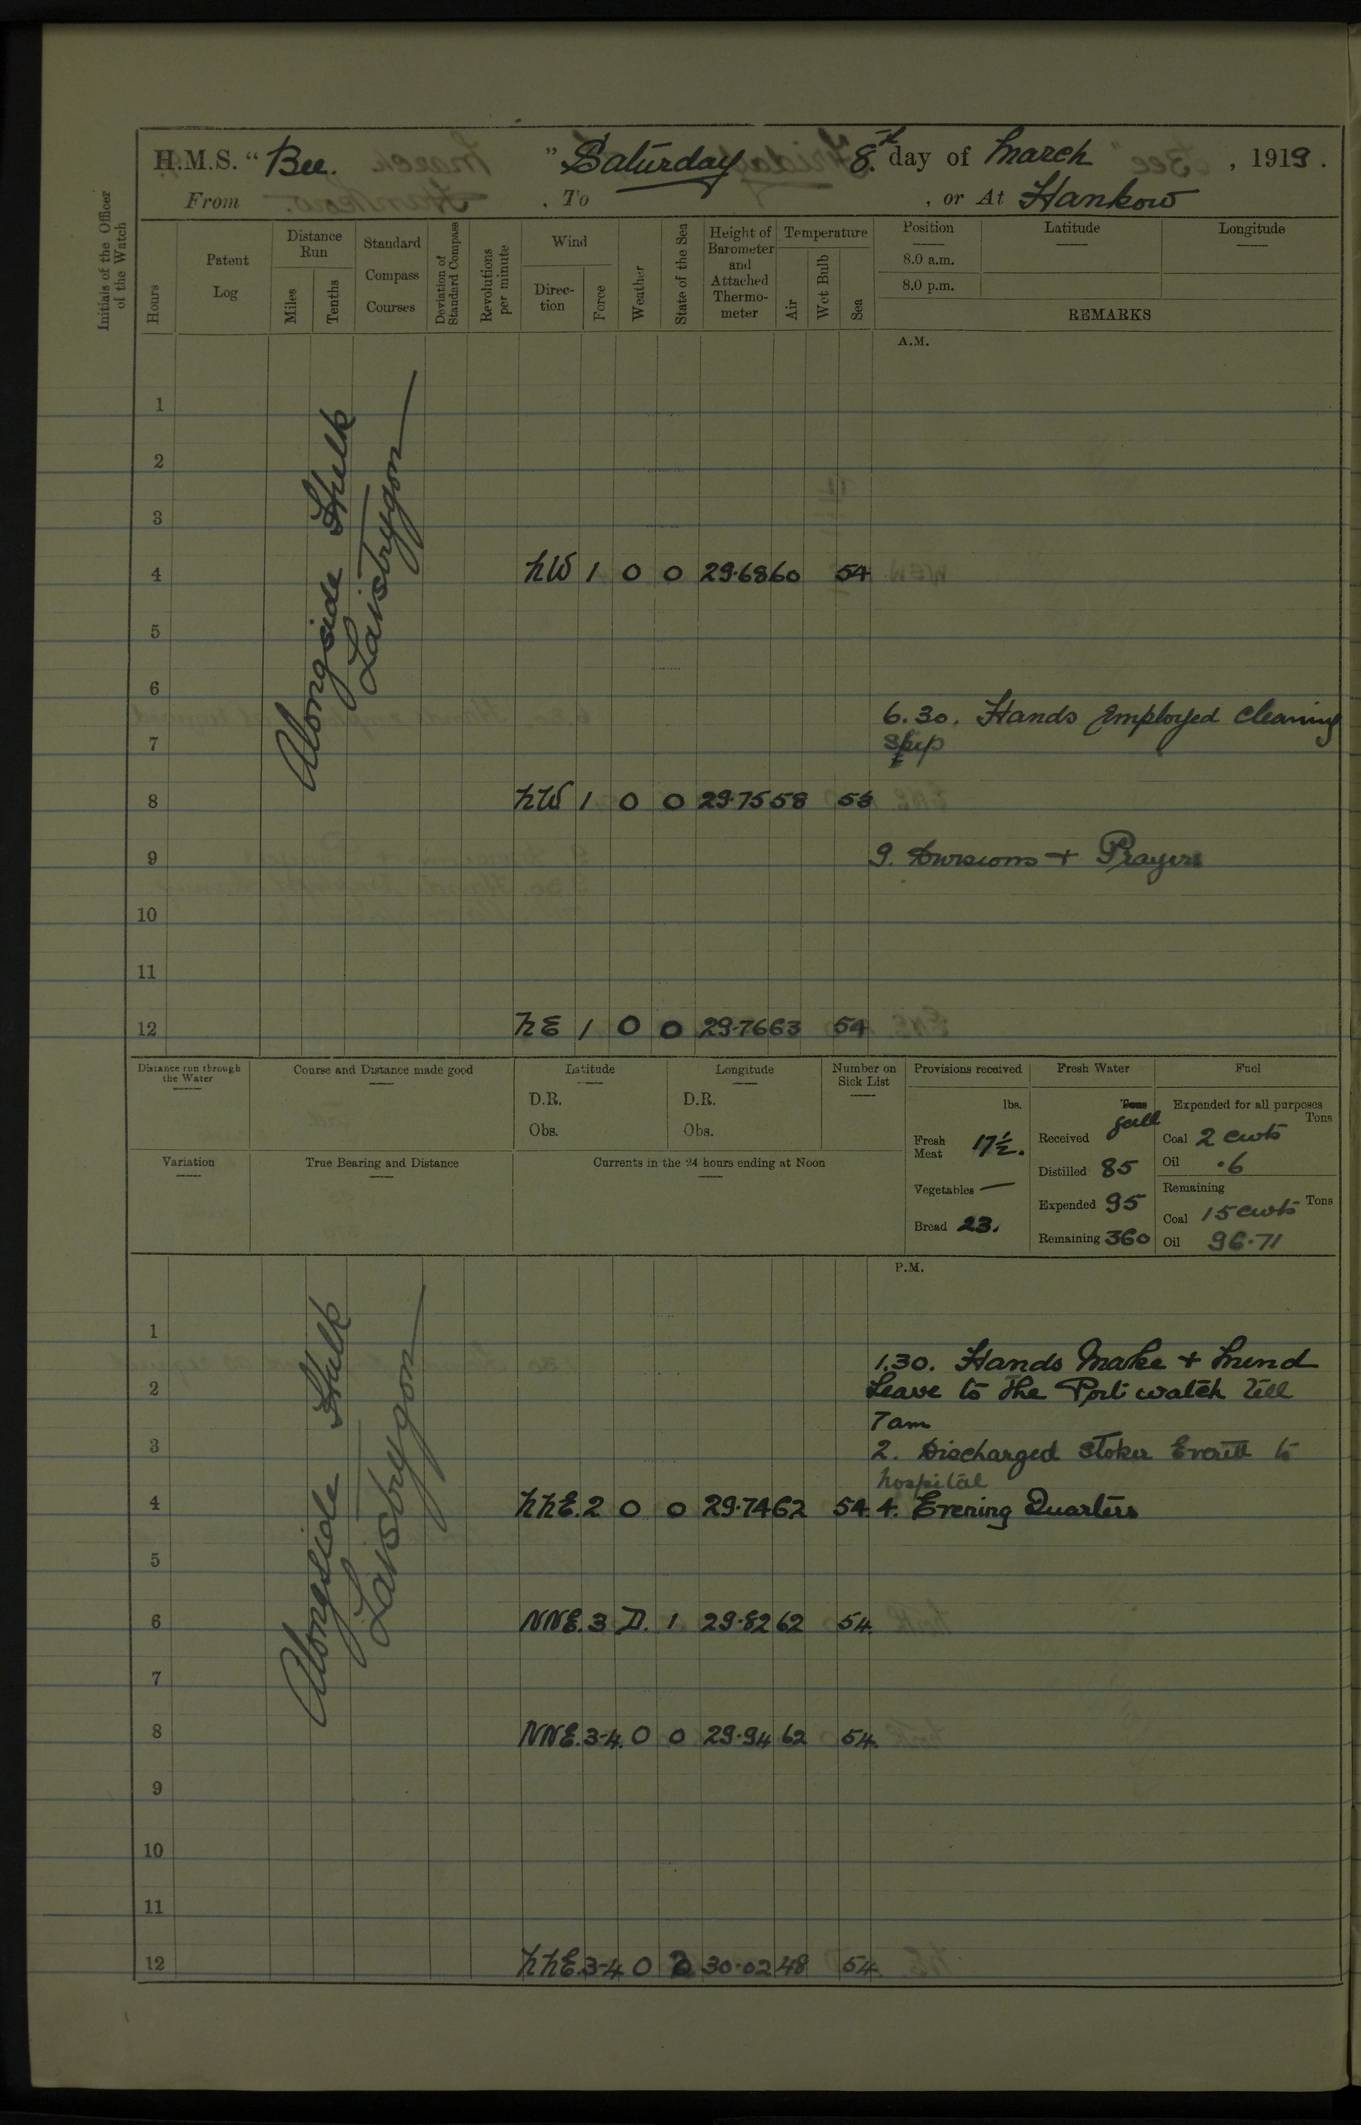 H.M.S. "Bee." Saturday 8.th day of March, 1919.
From , To , or At Hankow
Initials of the Officer of the Watch
Hours
Patent Log
Distance Run
Miles
Tenths
Standard Compass Courses
Deviation of Standard Compass
Revolutions per minute
Wind
Direction
Force
Weather
State of the Sea
Height of Barometer and Attached Thermometer
Temperature
Air
Wet Bulb
Sea
Position
8.0 a.m.
8.0 p.m.
Latitude
Longitude
REMARKS
A.M.
Alongside Hulk
1
2
3
4 NW 1 0 0 29.68 60 54
5
6
6.30. Hands Employed Cleaning
7 Ship
8 NW 1 0 0 29.75 58 53
9 9. Divisions + Prayers
10
11
12 NE 1 0 0 29.76 63 54
Distance run through the Water
Course and Distance made good
Latitude
D.R.
Obs.
Longitude
D.R.
Obs.
Number on Sick List
Variation
True Bearing and Distance
Currents in the 24 hours ending at Noon
Provisions received
lbs.
Fresh Meat 17½.
Vegetables —
Bread 23.
Fresh Water
Tons
gall
Received
Distilled 85
Expended 95
Remaining 360
Fuel
Expended for all purposes
Tons
Coal 2 cwts
Oil .6
Remaining
Tons
Coal 15 cwts
Oil 96.71
P.M.
Alongside Hulk
1
1.30. Hands Make + Mend
2 Leave to the Port watch till
7am
3 2. Discharged Stoker Everitt to
hospital
4 NNE. 2 0 0 29.74 62 54. 4. Evening Quarters
5
6 NNE. 3 D. 1 29.82 62 54.
7
8 NNE. 3-4. 0 0 29.94 62 54.
9
10
11
12 NNE. 3-4 0 2 30.02 48 54.